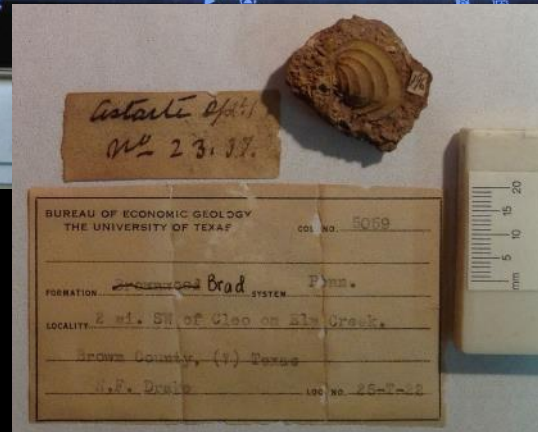 Astarte
No 23.37.
BUREAU OF ECONOMIC GEOLOGY
THE UNIVERSITY OF TEXAS
COL NO. 5059
FORMATION Brownwood Brad SYSTEM Penn.
LOCALITY 2 mi. SW of Cleo on Elm Creek.
Brown County, (?) Texas
N.F. Drake LOC NO. 25-T-22
mm 5 10 15 20